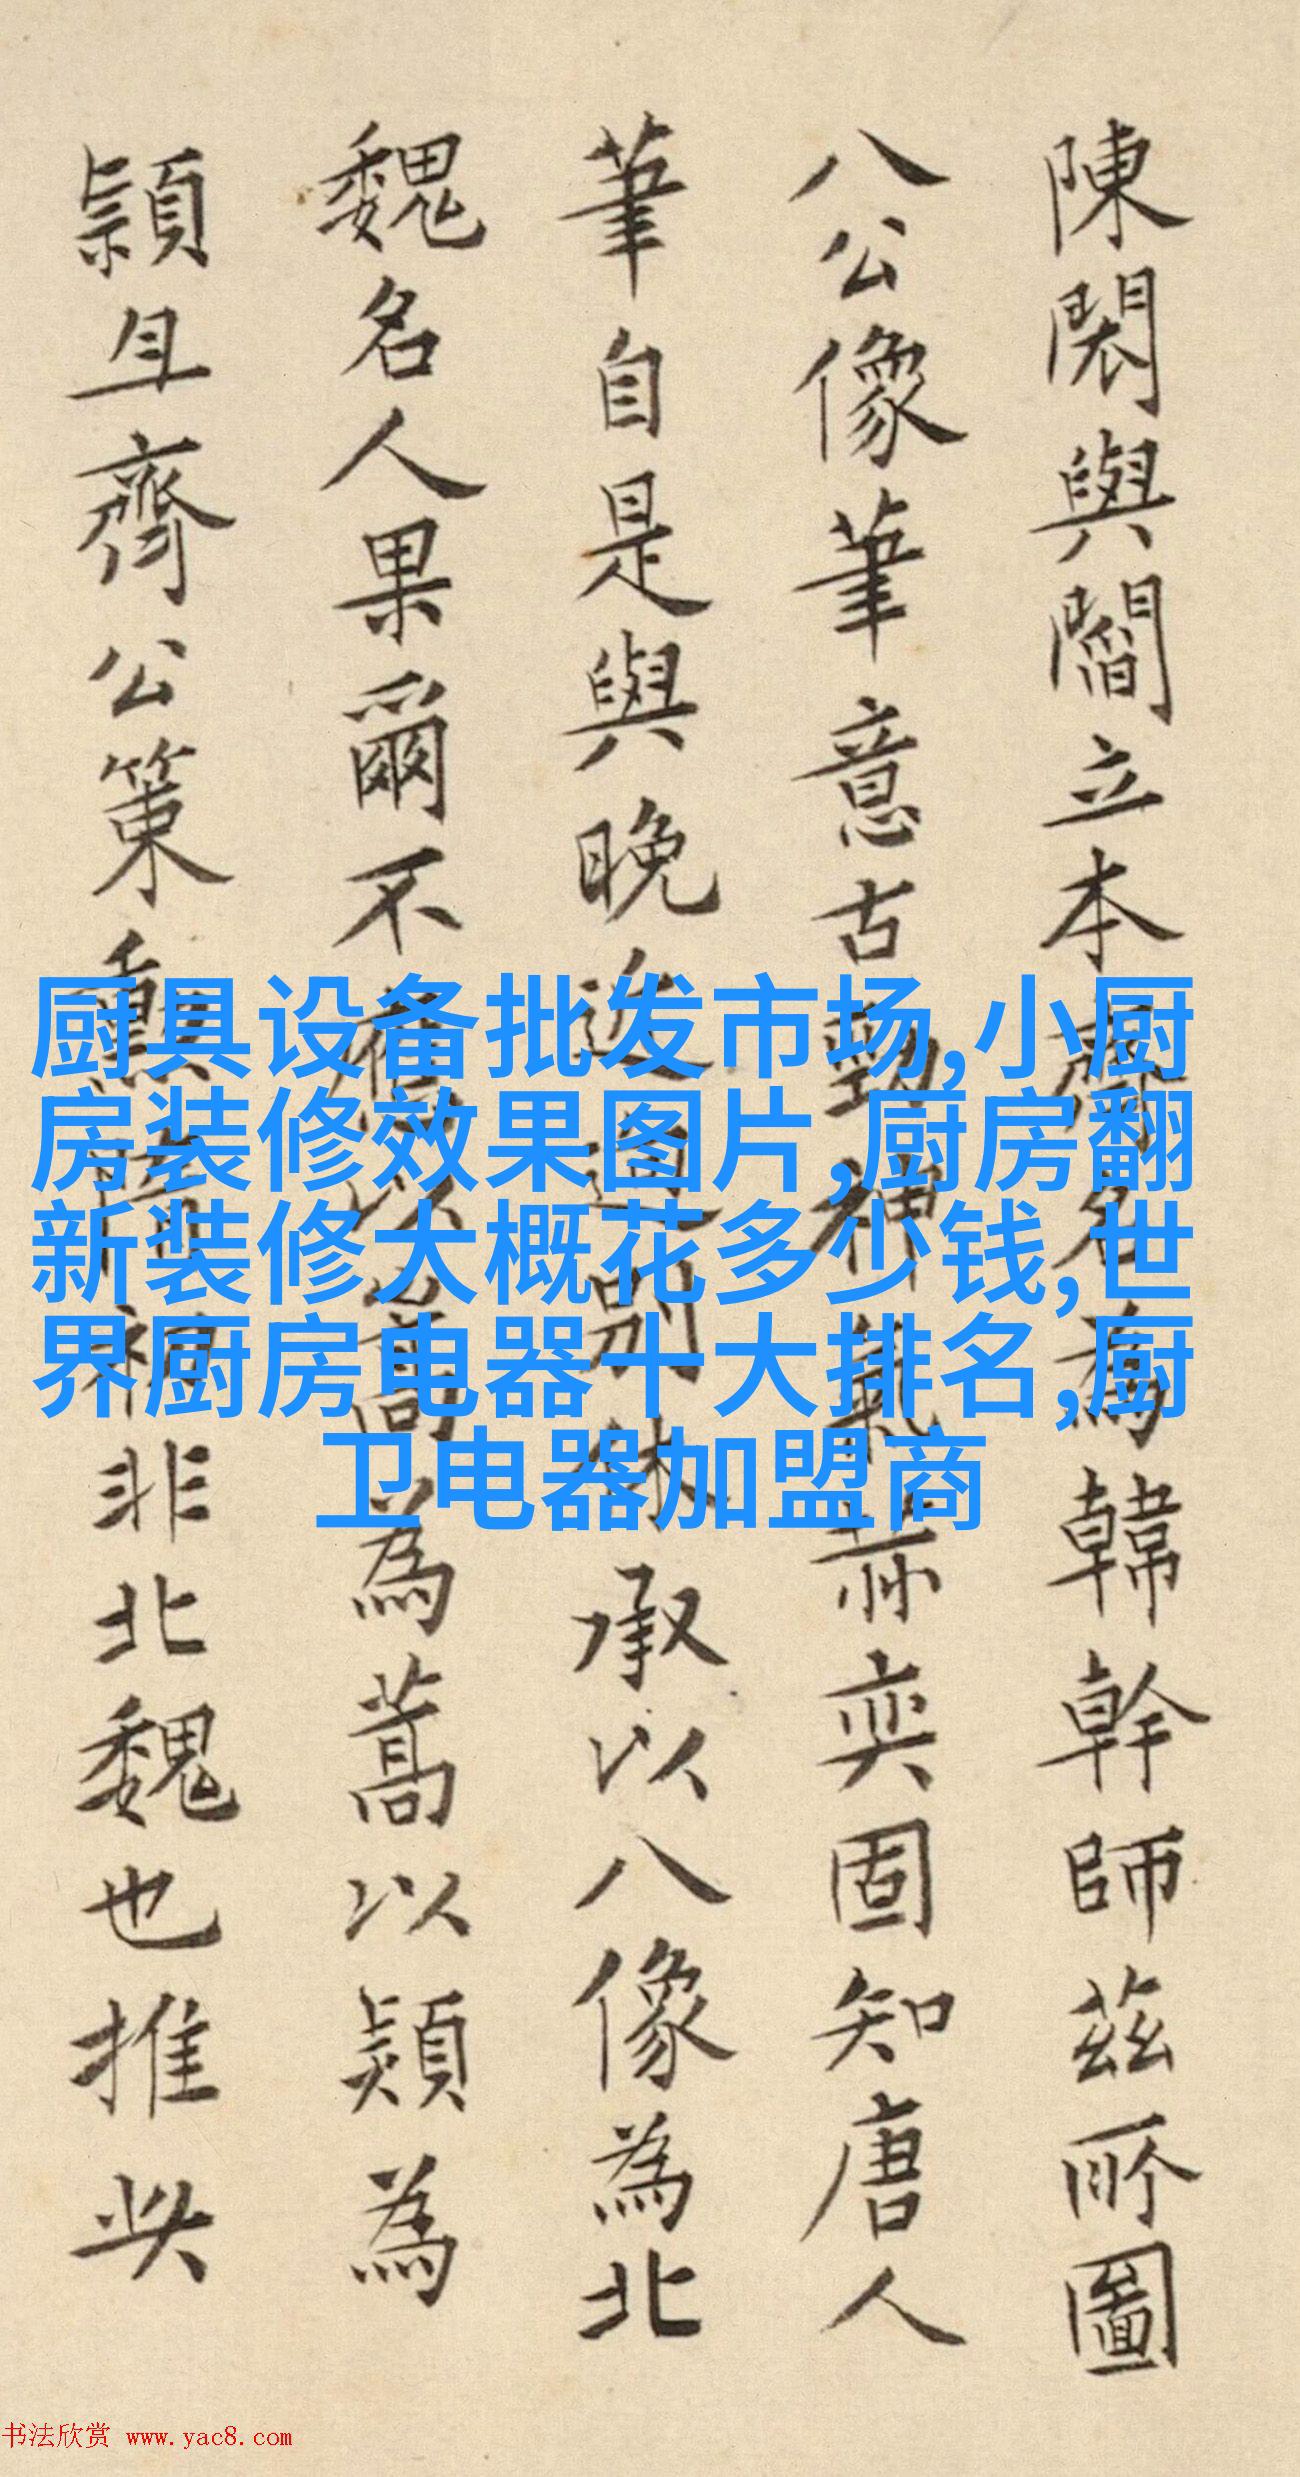 陳閎與閻立本齊名為韓幹師茲所圖
八公像筆意古勁神氣赫奕固知唐人
筆自是與晚近迥別林承以八像為北
魏名人果爾不應以嵩為蒿以頴為
頴且齊公策勲非北魏也推此
厨具设备批发市场,小厨
房装修效果图片,厨房翻
新装修大概花多少钱,世
界厨房电器十大排名,厨
卫电器加盟商
书法欣赏 www.yac8.com